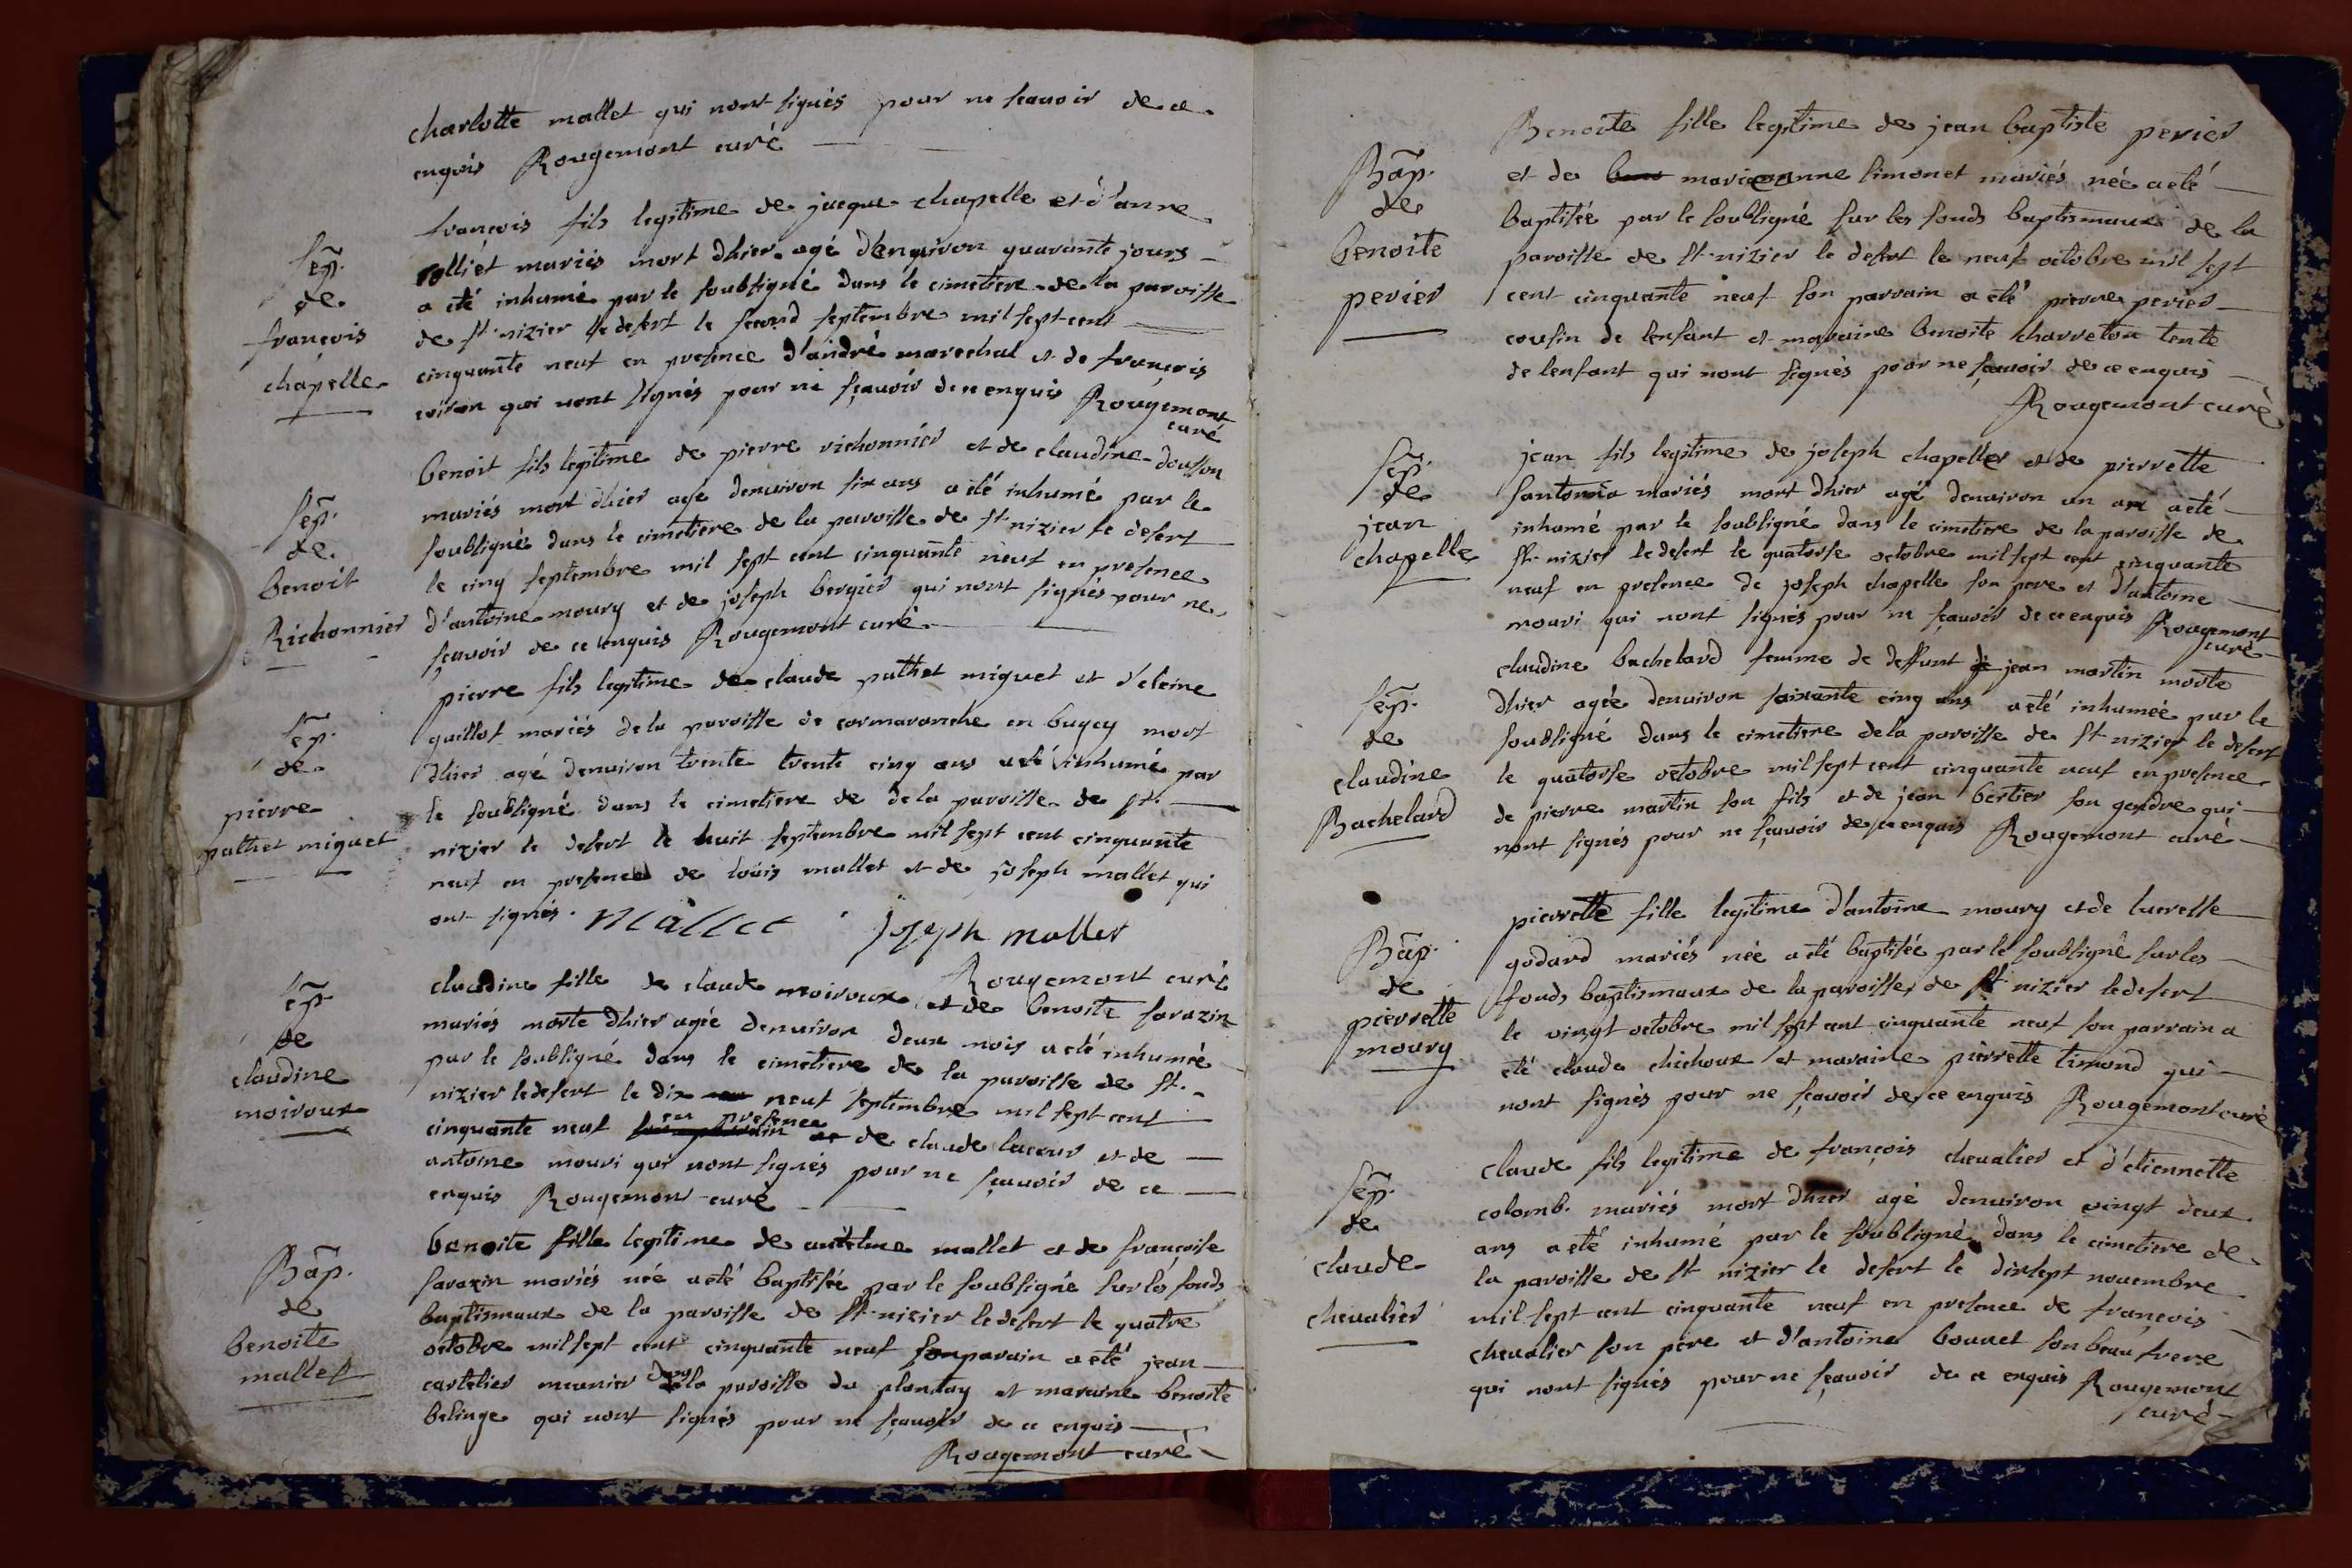 charlotte mallet qui nont signés pour ne scauoir de ce
enquis Rougemont curé
sep.
de
françois
chapelle
françois fils legitime de jacque chapelle et d'anne
colliét mariés mort dhier agé denuiron quarante jours
a été inhumé par le soubsigné dans le cimetiere de la paroisse
de st. nizier le desert le second septembre mil sept cent
cinquante neuf en presence d'andré marechal et de françois
qui nont signés pour ne sçauoir de ce enquis Rougemont
curé
sep.
de
benoit
Richonnier
benoit fils legitime de pierre richonnier et de claudine dousson
mariés mort dhier agé denuiron six ans a été inhumé par le
soubsigné dans le cimetiere de la paroisse de st. nizier le desert
le cinq septembre mil sept cent cinquante neuf en presence
d'antoine moury et de joseph bergier qui nont signés pour ne
sçauoir de ce enquis Rougemont curé
sep.
de
pierre
pathet miguet
pierre fils legitime de claude pathet miguet et d'eleine
guillot mariés de la paroisse de cormaranche en bugey mort
dhier agé denuiron trente trente cinq ans a été inhumé par
le soubsigné dans le cimetiere de de la paroisse de st.
nizier le desert le huit septembre mil sept cent cinquante
neuf en presence de loüis mallet et de joseph mallet qui
ont signés. Mallet Joseph mallet
Rougemont curé
sep.
de
claudine
moiroux
claudine fille de claude moiroux et de benoite sarazin
mariés morte dhier agée denuiron deux mois a été inhumée
par le soubsigné dans le cimetiere de la paroisse de st.
nizier le desert le dix neuf septembre mil sept cent
cinquante neuf en presence de claude lacour et de
antoine mouri qui nont signés pour ne sçauoir de ce
enquis Rougemont curé
Bap.
de
benoite
mallet
benoite fille legitime de antelme mallet et de françoise
sarazin mariés née a été baptisée par le soubsigné sur les fonds
baptismaux de la paroisse de st. nizier le desert le quatre
octobre mil sept cent cinquante neuf son parain a été jean
cartelier meunier dans la paroisse du plantay et maraine benoite
belinge qui nont signés pour ne sçauoir de ce enquis
Rougemont curé
Bap.
de
benoite
perier
Benoite fille legitime de jean baptiste perier
et de marieanne simonet mariés née a été
baptisée par le soubsigné sur les fonds baptismaux de la
paroisse de st. nizier le desert le neuf octobre mil sept
cent cinquante neuf son parrain a été pierre perier
cousin de lenfant et maraine benoite charreton tente
de lenfant qui nont signés pour ne sçauoir de ce enquis
Rougemont curé
sep.
de
jean
chapelle
jean fils legitime de joseph chapelle et de pierrette
santonna mariés mort dhier agé denuiron un an a été
inhumé par le soubsigné dans le cimetiere de la paroisse de
st. nizier le desert le quatorse octobre mil sept cent cinquante
neuf en presence de joseph chapelle son pere et d'antoine
mouri qui nont signés pour ne sçauoir de ce enquis Rougemont
curé
sep.
de
claudine
Bachelard
claudine bachelard femme de deffunt jean martin morte
dhier agée denuiron soixante cinq ans a été inhumée par le
soubsigné dans le cimetiere de la paroisse de st nizier le desert
le quatorse octobre mil sept cent cinquante neuf en presence
de pierre martin son fils et de jean bertier son gendre qui
nont signés pour ne sçauoir de ce enquis Rougemont curé
Bap.
de
pierrette
moury
pierrette fille legitime d'antoine moury et de lucresse
godard mariés née a été baptisée par le soubsigné sur les
fonds baptismaux de la paroisse de st nizier le desert
le vingt octobre mil sept cent cinquante neuf son parrain a
été claude chichoux et maraine pierrette timond qui
nont signés pour ne sçauoir de ce enquis Rougemont curé
sep.
de
claude
cheualier
claude fils legitime de françois cheualier et d'etiennette
colomb. mariés mort dhier agé denuiron vingt deux
ans a été inhumé par le soubsigné dans le cimetiere de
la paroisse de st nizier le desert le dixsept nouembre
mil sept cent cinquante neuf en presence de françois
cheualier son pere et d'antoine bouuet son beau frere
qui nont signés pour ne sçauoir de ce enquis Rougemont
curé